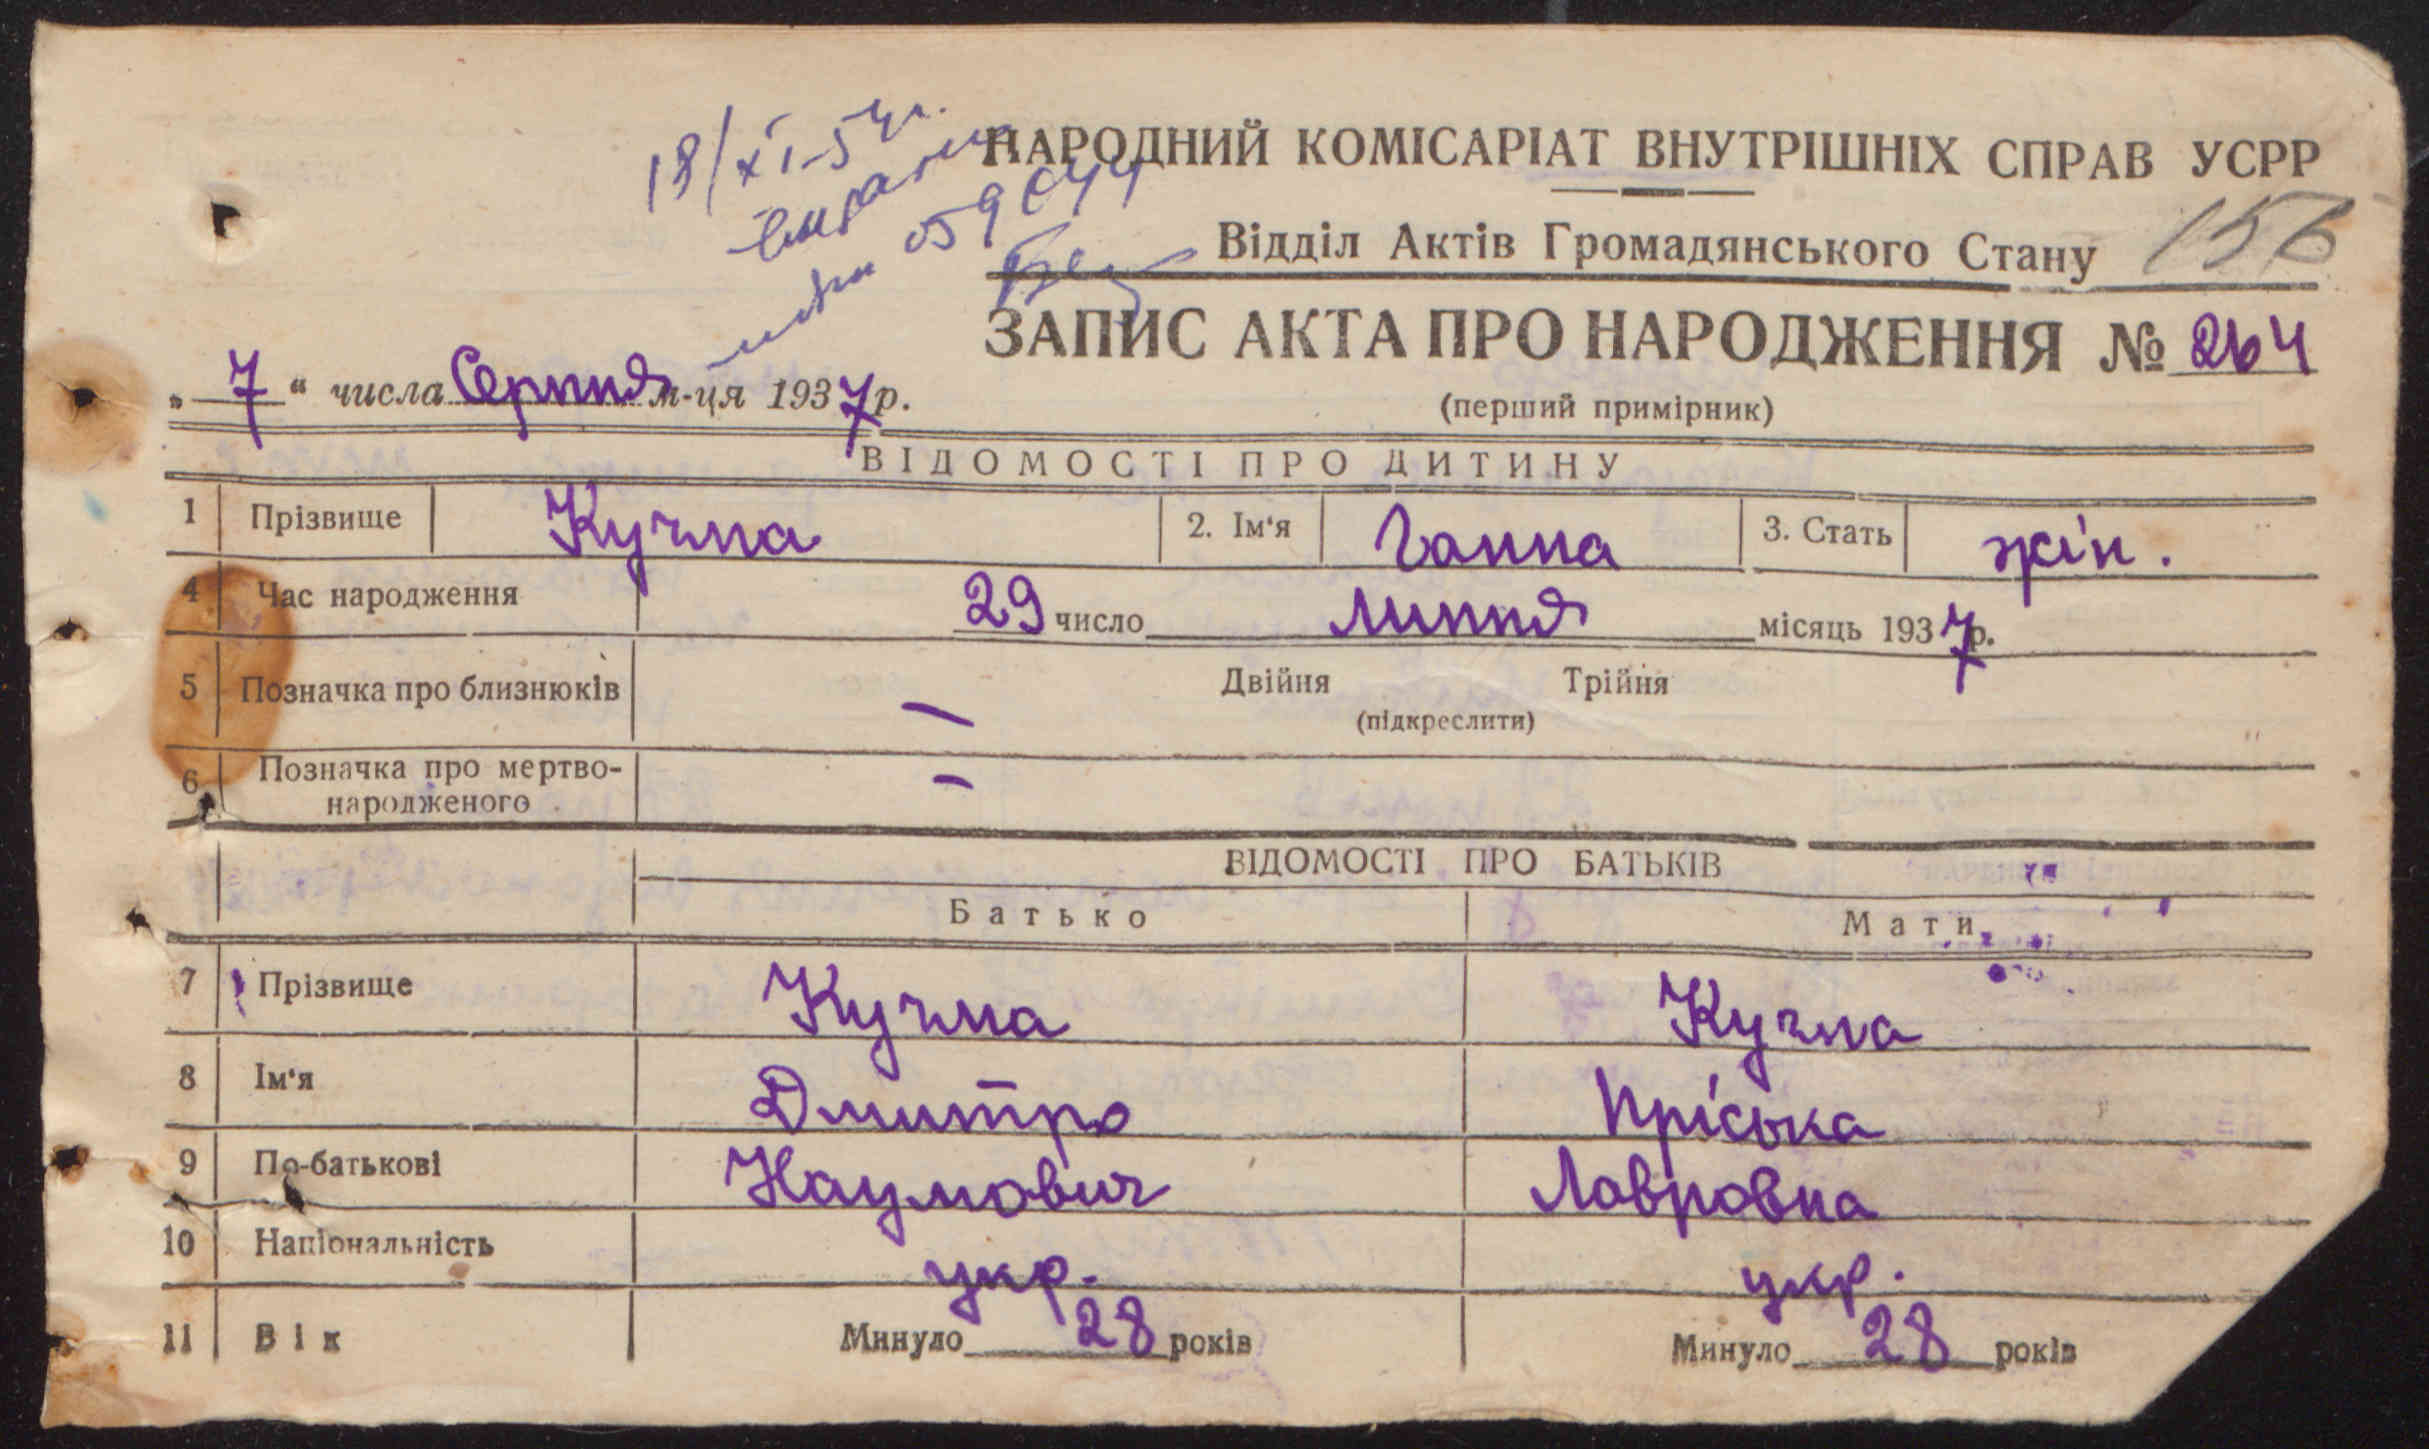 18/XI-54р.
НАРОДНИЙ КОМІСАРІАТ ВНУТРІШНІХ СПРАВ УСРР
Відділ Актів Громадянського Стану
156
ЗАПИС АКТА ПРО НАРОДЖЕННЯ № 264
„7“ числа Серпня м-ця 1937р.
(перший примірник)
ВІДОМОСТІ ПРО ДИТИНУ
1 Прізвище Кучма 2. Ім'я Ганна 3. Стать жін.
4 Час народження 29 число липня місяць 1937р.
5 Позначка про близнюків — Двійня Трійня
(підкреслити)
6 Позначка про мертво-
народженого —
ВІДОМОСТІ ПРО БАТЬКІВ
Батько Мати
7 Прізвище Кучма Кучма
8 Ім'я Дмитро Пріська
9 По-батькові Наумович Лавровна
10 Національність укр. укр.
11 Вік Минуло 28 років Минуло 28 років